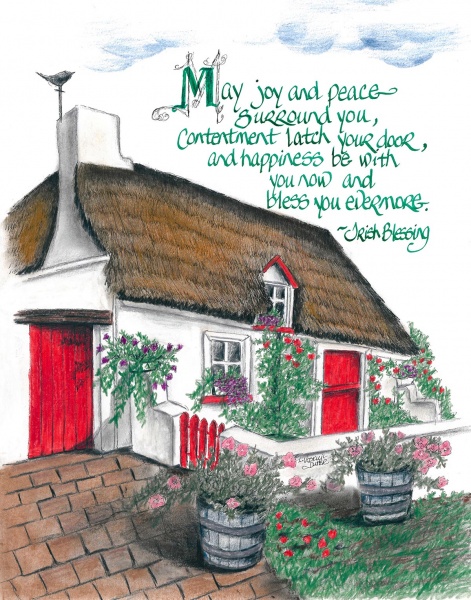 May joy and peace
surround you,
Contentment latch your door,
and happiness be with
you now and
bless you evermore.
~Irish Blessing